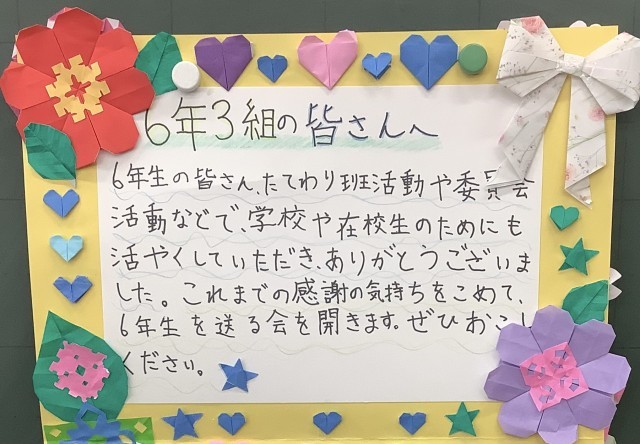 6年3組の皆さんへ
6年生の皆さん、たてわり班活動や委員会
活動などで、学校や在校生のためにも
活やくしていただき、ありがとうございま
した。これまでの感謝の気持ちをこめて、
6年生を送る会を開きます。ぜひおこし
ください。